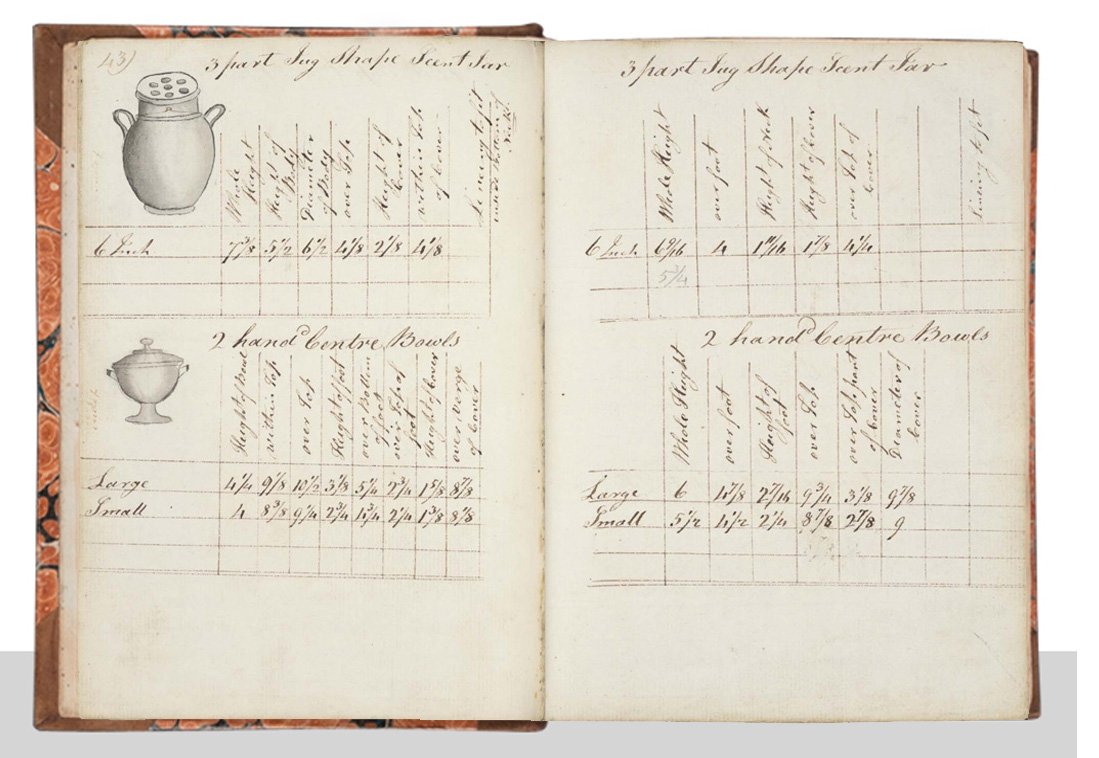 43)
3 part Jug Shape Scent Jar
Whole Height
Height of Body
Diameter of Body
over Top
Height of Cover
within Top of Cover
Lineing to fit inside Bottom of Neck
6 Inch 7 5 1/2 6 1/2 4 1/8 2 1/8 4 1/8
2 hand^d Centre Bowls
Height of Bowl
within Top
over Top
Height of foot
over Bottom of foot
over Top of foot
Height of Cover
over Verge of Cover
Large 4 1/4 9 1/8 10 1/2 3 1/8 5 1/4 2 3/4 1 5/8 8 7/8
Small 4 8 3/8 9 1/4 2 3/4 4 3/4 2 1/4 1 3/8 8 1/8
3 part Jug Shape Scent Jar
Whole Height
over foot
Height of Neck
Height of Cover
over Top of Cover
Lining to fit
6 Inch 6 9/16 4 1 1 7/8 4 1/4
5 3/4
2 hand^d Centre Bowls
Whole Height
over foot
Height of foot
over Top
over Top part of Cover
Diameter of Cover
Large 6 4 7/8 2 7/16 9 3/4 3 1/8 9 7/8
Small 5 1/2 4 1/2 2 1/4 8 7/8 2 7/8 9